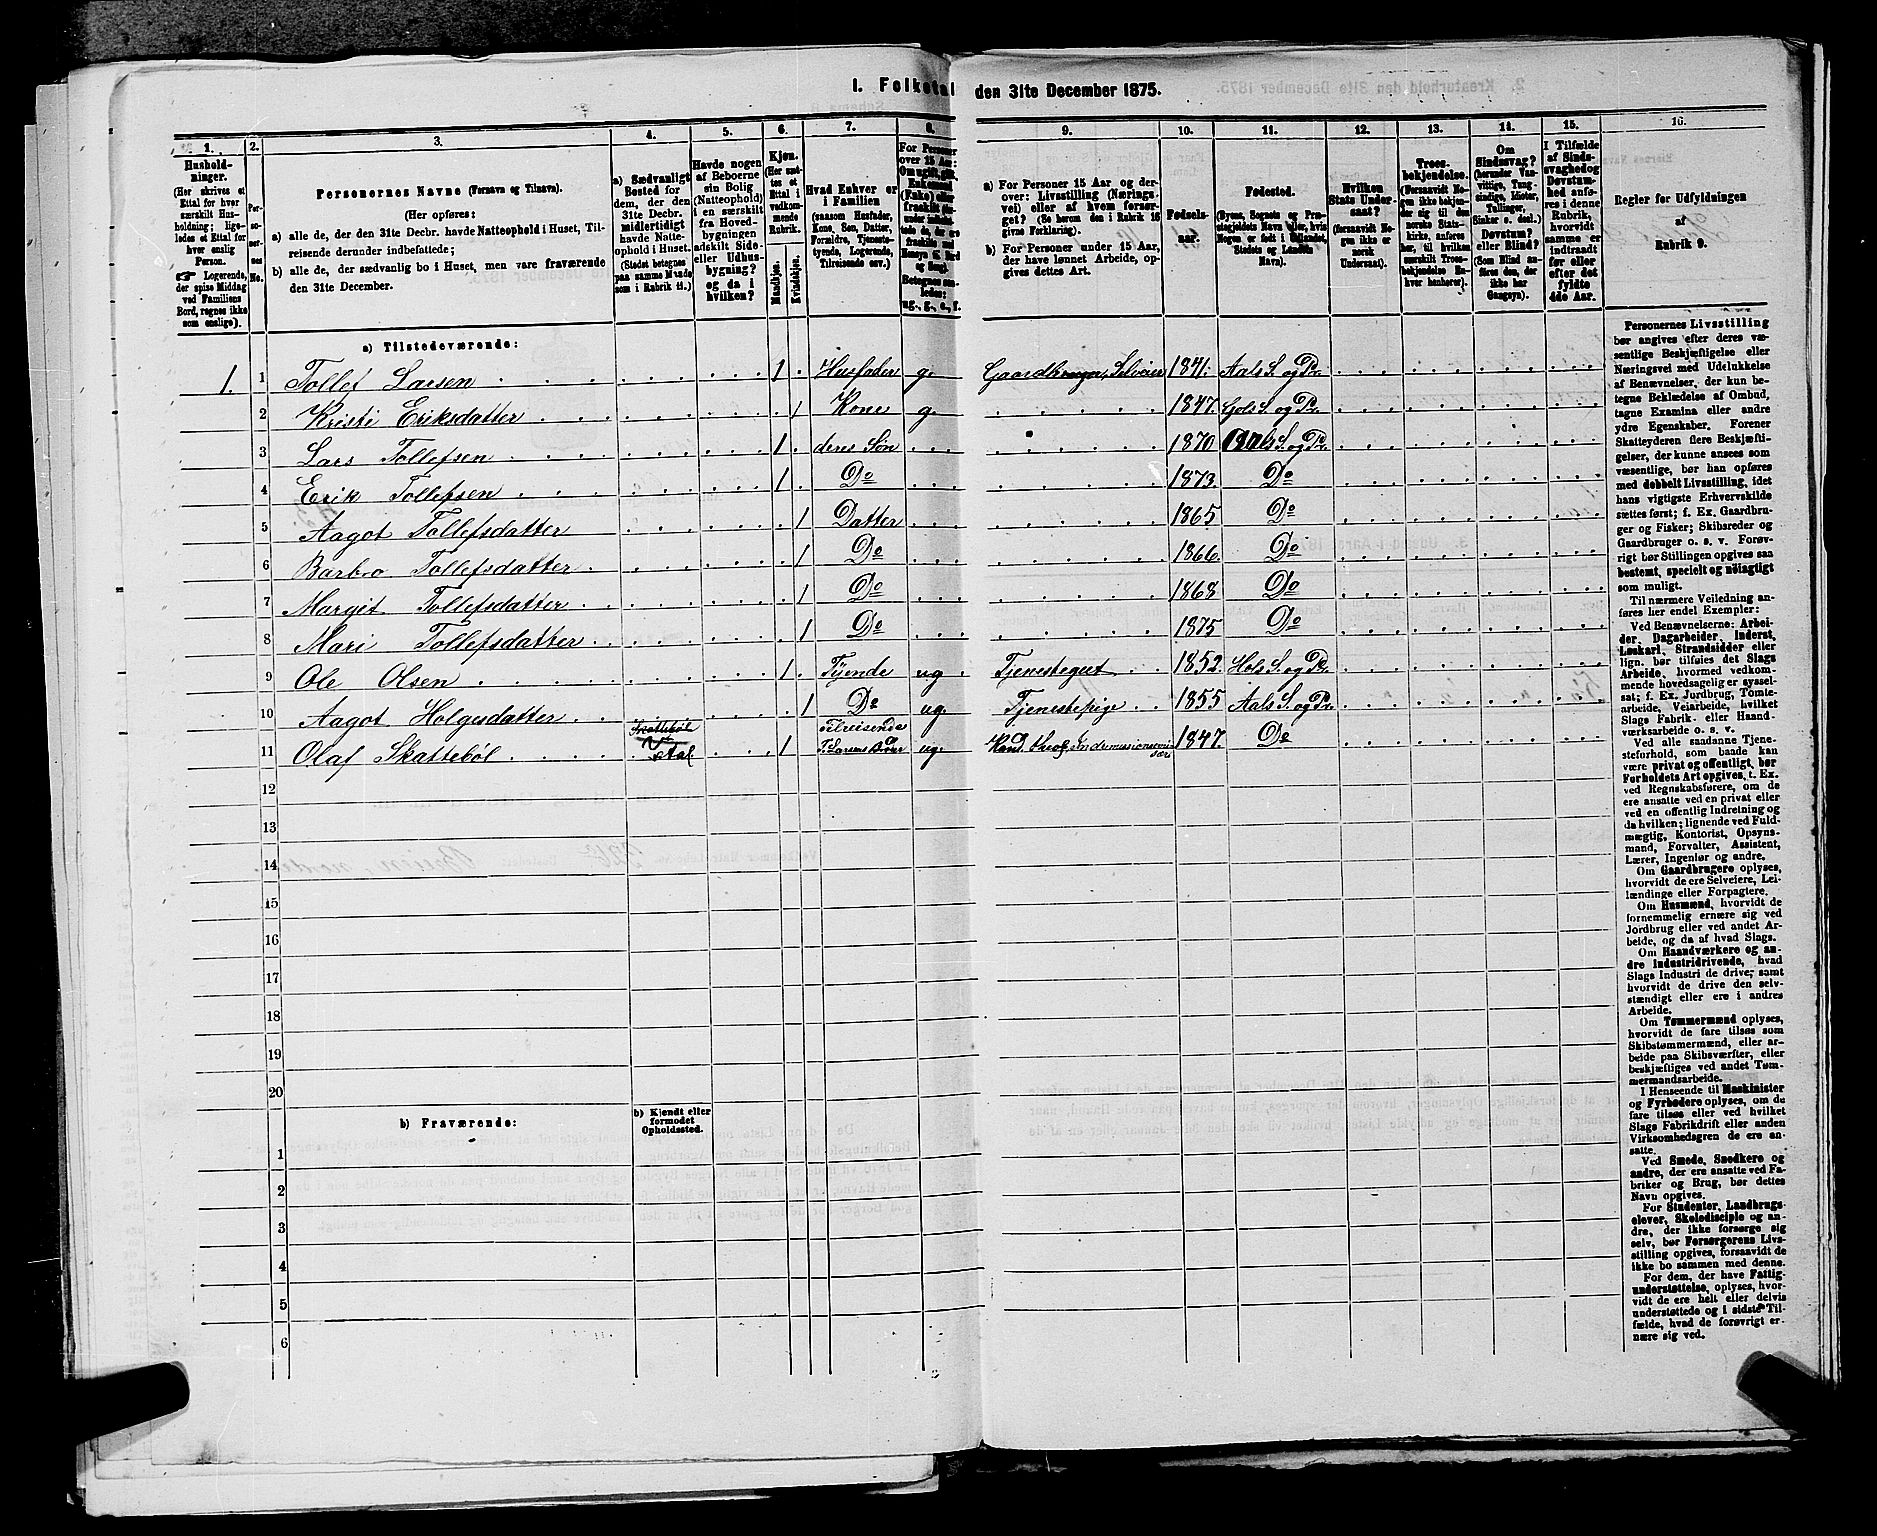 1. Folketal den 31te December 1875.
1. 2. 3. 4. 5. 6. 7. 8. 9. 10. 11. 12. 13. 14. 15. 16.
Husholdninger.
(Her skrives et
Ettal for hver
særskilt Husholdning;
ligeledes et Ettal for
hver enslig
Person.
☛ Logerende,
der spise Middag
ved Familiens
Bord, regnes ikke
som enslige).
Personernes No.
Personernes Navne (Fornavn og Tilnavn).
(Her opføres:
a) alle de, der den 31te Decbr. havde Natteophold i Huset, Tilreisende derunder indbefattede;
b) alle de, der sædvanlig bo i Huset, men vare fraværende
den 31te December.
a) Sædvanligt
Bosted for
dem, der den
31te Decbr.
midlertidigt
havde Natteophold
i Huset.
(Stedet betegnes
paa samme Maade
som i Rubrik 11.)
Havde nogen
af Beboerne
sin Bolig
(Natteophold)
i en særskilt
fra Hovedbygningen
adskilt Side-
eller Udhusbygning?
og da i
hvilken?
Kjøn.
(Her sættes et
Ettal i
vedkommende
Rubrik.
Mandkjøn.
Kvindekjøn.
Hvad Enhver er
i Familien
(saasom Husfader,
Kone, Søn, Datter,
Forældre, Tjenestetyende,
Logerende,
Tilreisende osv.)
For Personer
over 15 Aar:
Om ugift, gift,
Enkemand
(Enke) eller
fraskilt
Betegnes saaledes:
ug., g., e., f.
a) For Personer 15 Aar og derover:
Livsstilling (Næringsvei)
eller af hvem forsørget?
(Se herom den i Rubrik 16
givne Forklaring).
b) For Personer under 15 Aar,
der have lønnet Arbeide, opgives
dettes Art.
Fødselsaar.
Fødested.
(Byens, Sognets og Præstegjeldets
Navn eller, hvis
Nogen er født i Udlandet,
Stedets og Landets
Navn).
Hvilken
Stats Undersaat?
(forsaavidt Nogen
ikke er
norsk
Undersaat).
Troesbekjendelse.
(Forsaavidt Nogen
ikke bekjender
sig til den
norske Statskirke,
anføres
her, til hvilken
særskilt Troesbekjendelse
Enhver
henhører).
Om
Sindssvag?
(herunder Vanvittige,
Tungsindige,
Idioter,
Tullinger,
Sinker o. desl.)
Døvstum?
eller Blind?
(Som Blind anføres
den, der
ikke har
Gangsyn).
I Tilfælde
af Sindssvaghed
og
Døvstumhed
anføres
i denne
Rubrik,
hvorvidt
samme er
indtraadt
før eller
efter det
fyldte
4de Aar.
Regler for Udfyldningen
af
Rubrik 9.
a) Tilstedeværende:
1. 1 Tollef Larsen 1 Husfader g. Gaardbruger, Selveier 1841. Aals S. og Pr.
2 Kristi Eriksdatter 1 Kone g. 1847. Gols S. og Pr.
3 Lars Tollefsen 1 deres Søn 1870 Aals S. og Pr.
4 Erik Tollefsen 1 Do 1873. Do
5 Aagot Tollefsdatter 1 Datter 1865 Do
6 Barbro Tollefsdatter 1 Do 1866. Do
7 Margit Tollefsdatter 1 Do 1868 Do
8 Mari Tollefsdatter 1 Do 1875 Do
9 Ole Olsen 1 Tyende ug Tjenestegut 1852. Hols S. og Pr.
10 Aagot Holgesdatter 1 Do ug. Tjenestepige 1855 Aals S. og Pr.
11 Olaf Skattebøl Skattebøl Aal 1 Tilreisende T. Larsens Broer ug. Kand. theol. 1847. Do
12
13
14
15
16
17
18
19
20
b) Fraværende:
b) Kjendt eller
formodet
Opholdssted.
1
2
3
4
5
6
Personernes Livsstilling
bør angives efter deres væsentlige
Beskjæftigelse eller
Næringsvei med Udelukkelse
af Benævnelser, der kun betegne
Beklædelse af Ombud,
tagne Examina eller andre
ydre Egenskaber. Forener
Skatteyderen flere Beskjæftigelser,
der kunne ansees som
væsentlige, bør han opføres
med dobbelt Livsstilling, idet
hans vigtigste Erhvervskilde
sættes først; f. Ex. Gaardbruger
og Fisker; Skibsreder og
Gaardbruger o. s. v. Forøvrigt
bør Stillingen opgives saa
bestemt, specielt og nøiagtigt
som muligt.
Til nærmere Veiledning anføres
her endel Exempler:
Ved Benævnelserne: Arbeider,
Dagarbeider, Inderst,
Løskarl, Strandsidder eller
lign. bør tilføies det Slags
Arbeide, hvormed vedkommende
hovedsagelig er sysselsat;
f. Ex. Jordbrug, Tomtearbeide,
Veiarbeide, hvilket
Slags Fabrik- eller Haandværksarbeide
o. s. v.
Ved alle saadanne Tjenesteforhold,
som baade kan
være privat og offentligt, bør
Forholdets Art opgives, t. Ex.
ved Regnskabsførere, om de
ere ansatte ved en privat eller
ved en offentlig Indretning og
da hvilken; lignende ved Fuldmægtig,
Kontorist, Opsynsmand,
Forvalter, Assistent,
Lærer, Ingeniør og andre.
Om Gaardbrugere oplyses,
hvorvidt de ere Selveiere, Leilændinge
eller Forpagtere.
Om Husmænd, hvorvidt de
fornemmelig ernære sig ved
Jordbrug eller ved andet Arbeide,
og da af hvad Slags.
Om Haandværkere og andre
Industridrivende, hvad
Slags Industri de drive; samt
hvorvidt de drive den selvstændigt
eller ere i andres
Arbeide.
Om Tømmermænd oplyses,
hvorvidt de fare tilsøs som
Skibstømmermænd, eller arbeide
paa Skibsværfter, eller
beskjæftiges ved andet Tømmermandsarbeide.
I Henseende til Maskinister
og Fyrbødere oplyses, om de
fare tilsøs eller ved hvilket
Slags Fabrikdrift eller anden
Virksomhedsgren de ere ansatte.
Ved Smede, Snedkere og
andre, der ere ansatte ved Fabriker
og Brug, bør dettes
Navn opgives.
For Studenter, Landbrugselever,
Skoledisciple og andre,
der ikke forsørge sig
selv, bør Forsørgerens Livsstilling
opgives, forsaavidt de
ikke bo sammen med denne.
For dem, der have Fattigunderstøttelse,
oplyses, hvorvidt
de ere helt eller delvis
understøttede og i sidste Tilfælde,
hvad de forøvrigt ernære
sig ved.